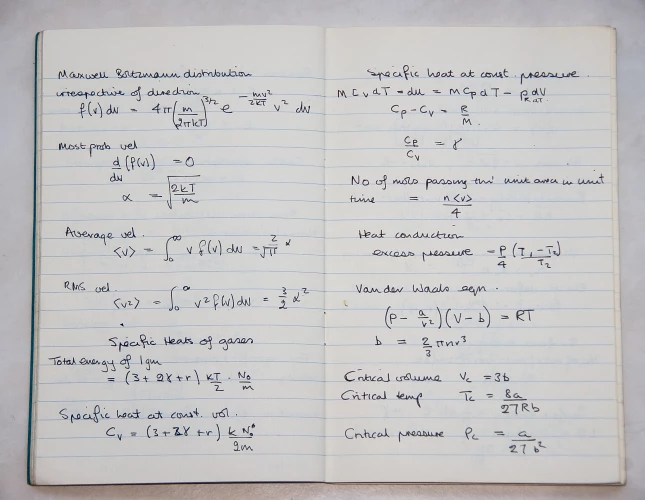 Maxwell Boltzmann distribution
irrespective of direction
f(v) dv = 4π(m/2πkT)^3/2 e^-mv²/2kT v² dv
Most prob vel
d/dv (f(v)) = 0
α = √(2kT/m)
Average vel.
<v> = ∫₀^∞ v f(v) dv = 2/√π α
RMS vel.
<v²> = ∫₀^∞ v² f(v) dv = 3/2 α²
Specific Heats of gases
Total energy of 1gm
= (3 + 2γ + r) kT/2 · N₀/m
Specific heat at const. vol.
C_v = (3 + 2γ + r) k N₀/2m
Specific heat at const. pressure.
M C_v dT = du = M C_p dT - p dV
C_p - C_v = R/M.
C_p/C_v = γ
No of mols passing thro' unit area in unit
time = n<v>/4
Heat conduction
excess pressure = P/4 (T₁ - T₂)/T₂
Van der Waals eqn.
(P - a/v²)(V - b) = RT
b = 2/3 πnr³
Critical volume V_c = 3b
Critical temp T_c = 8a/27Rb
Critical pressure P_c = a/27b²